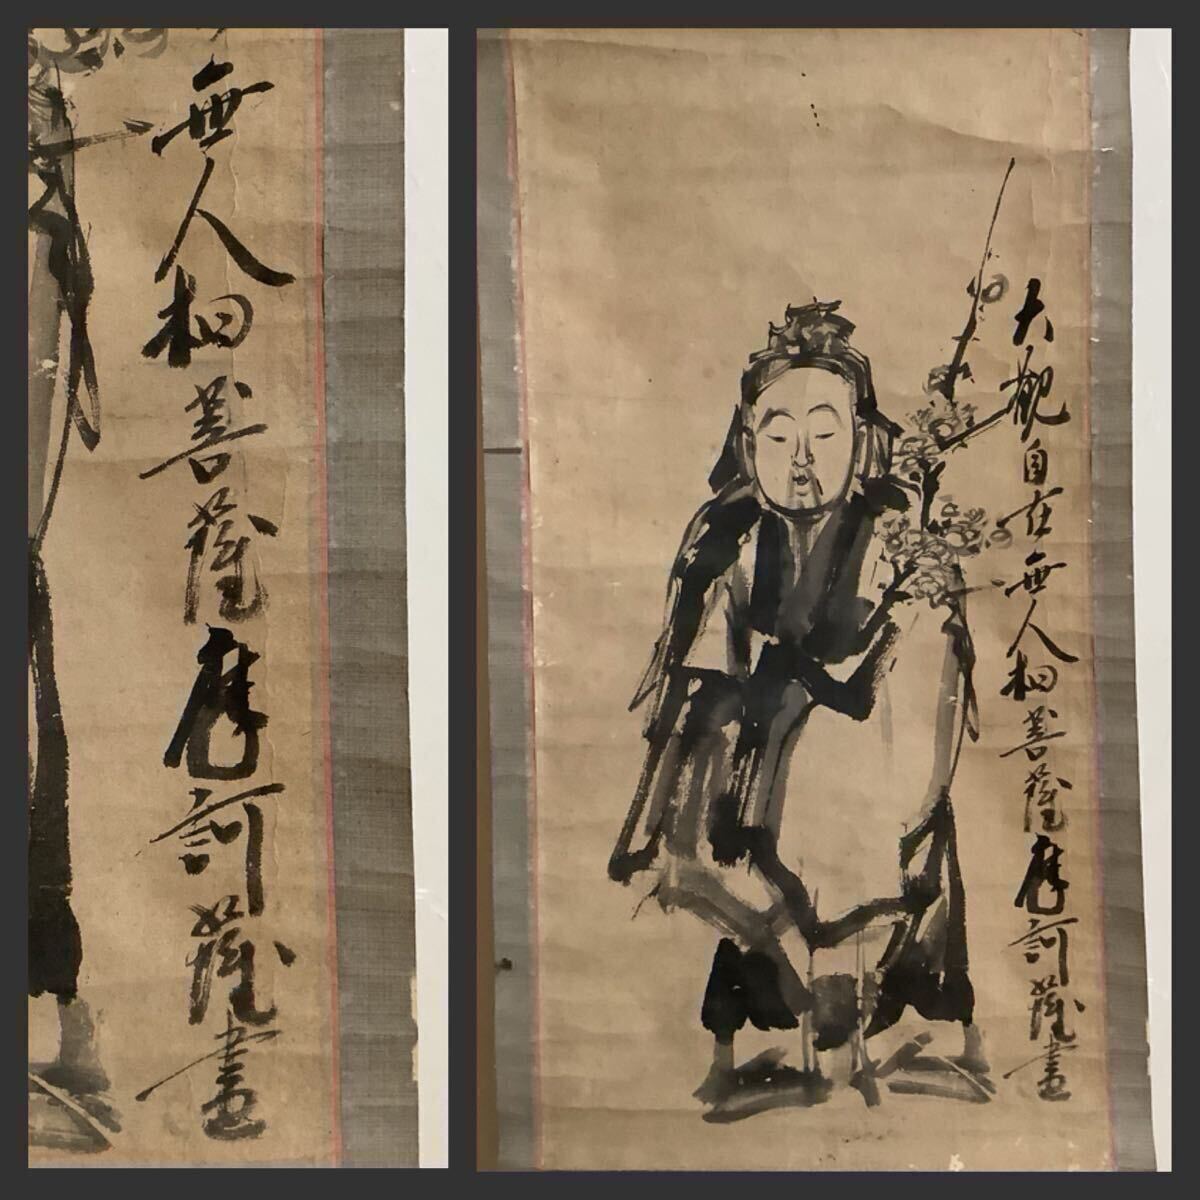 無人相菩薩摩訶薩畫
大觀自在無人相菩薩摩訶薩畫